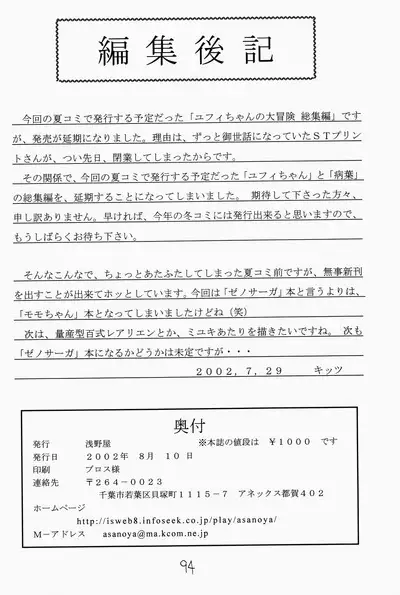 編集後記
今回の夏コミで発行する予定だった「ユフィちゃんの大冒険 総集編」です
が、発売が延期になりました。理由は、ずっと御世話になっていたＳＴプリン
トさんが、つい先日、閉業してしまったからです。
その関係で、今回の夏コミで発行する予定だった「ユフィちゃん」と「病葉」
の総集編を、延期することになってしまいました。 期待して下さった方々、
申し訳ありません。早ければ、今年の冬コミには発行出来ると思いますので、
もうしばらくお待ち下さい。
そんなこんなで、ちょっとあたふたしてしまった夏コミ前ですが、無事新刊
を出すことが出来てホッとしています。今回は「ゼノサーガ」本と言うよりは、
「モモちゃん」本となってしまいましたけどね（笑）
次は、量産型百式レアリエンとか、ミユキあたりを描きたいですね。 次も
「ゼノサーガ」本になるかどうかは未定ですが・・・
２００２，７，２９ キッツ
奥付
発行 浅野屋 ※本誌の値段は ￥１０００ です
発行日 ２００２年 ８月 １０ 日
印刷 プロス様
連絡先 〒２６４－００２３
千葉市若葉区貝塚町１１１５－７ アネックス都賀４０２
ホームページ
http://isweb8.infoseek.co.jp/play/asanoya/
Ｍ－アドレス asanoya@ma.kcom.ne.jp
94